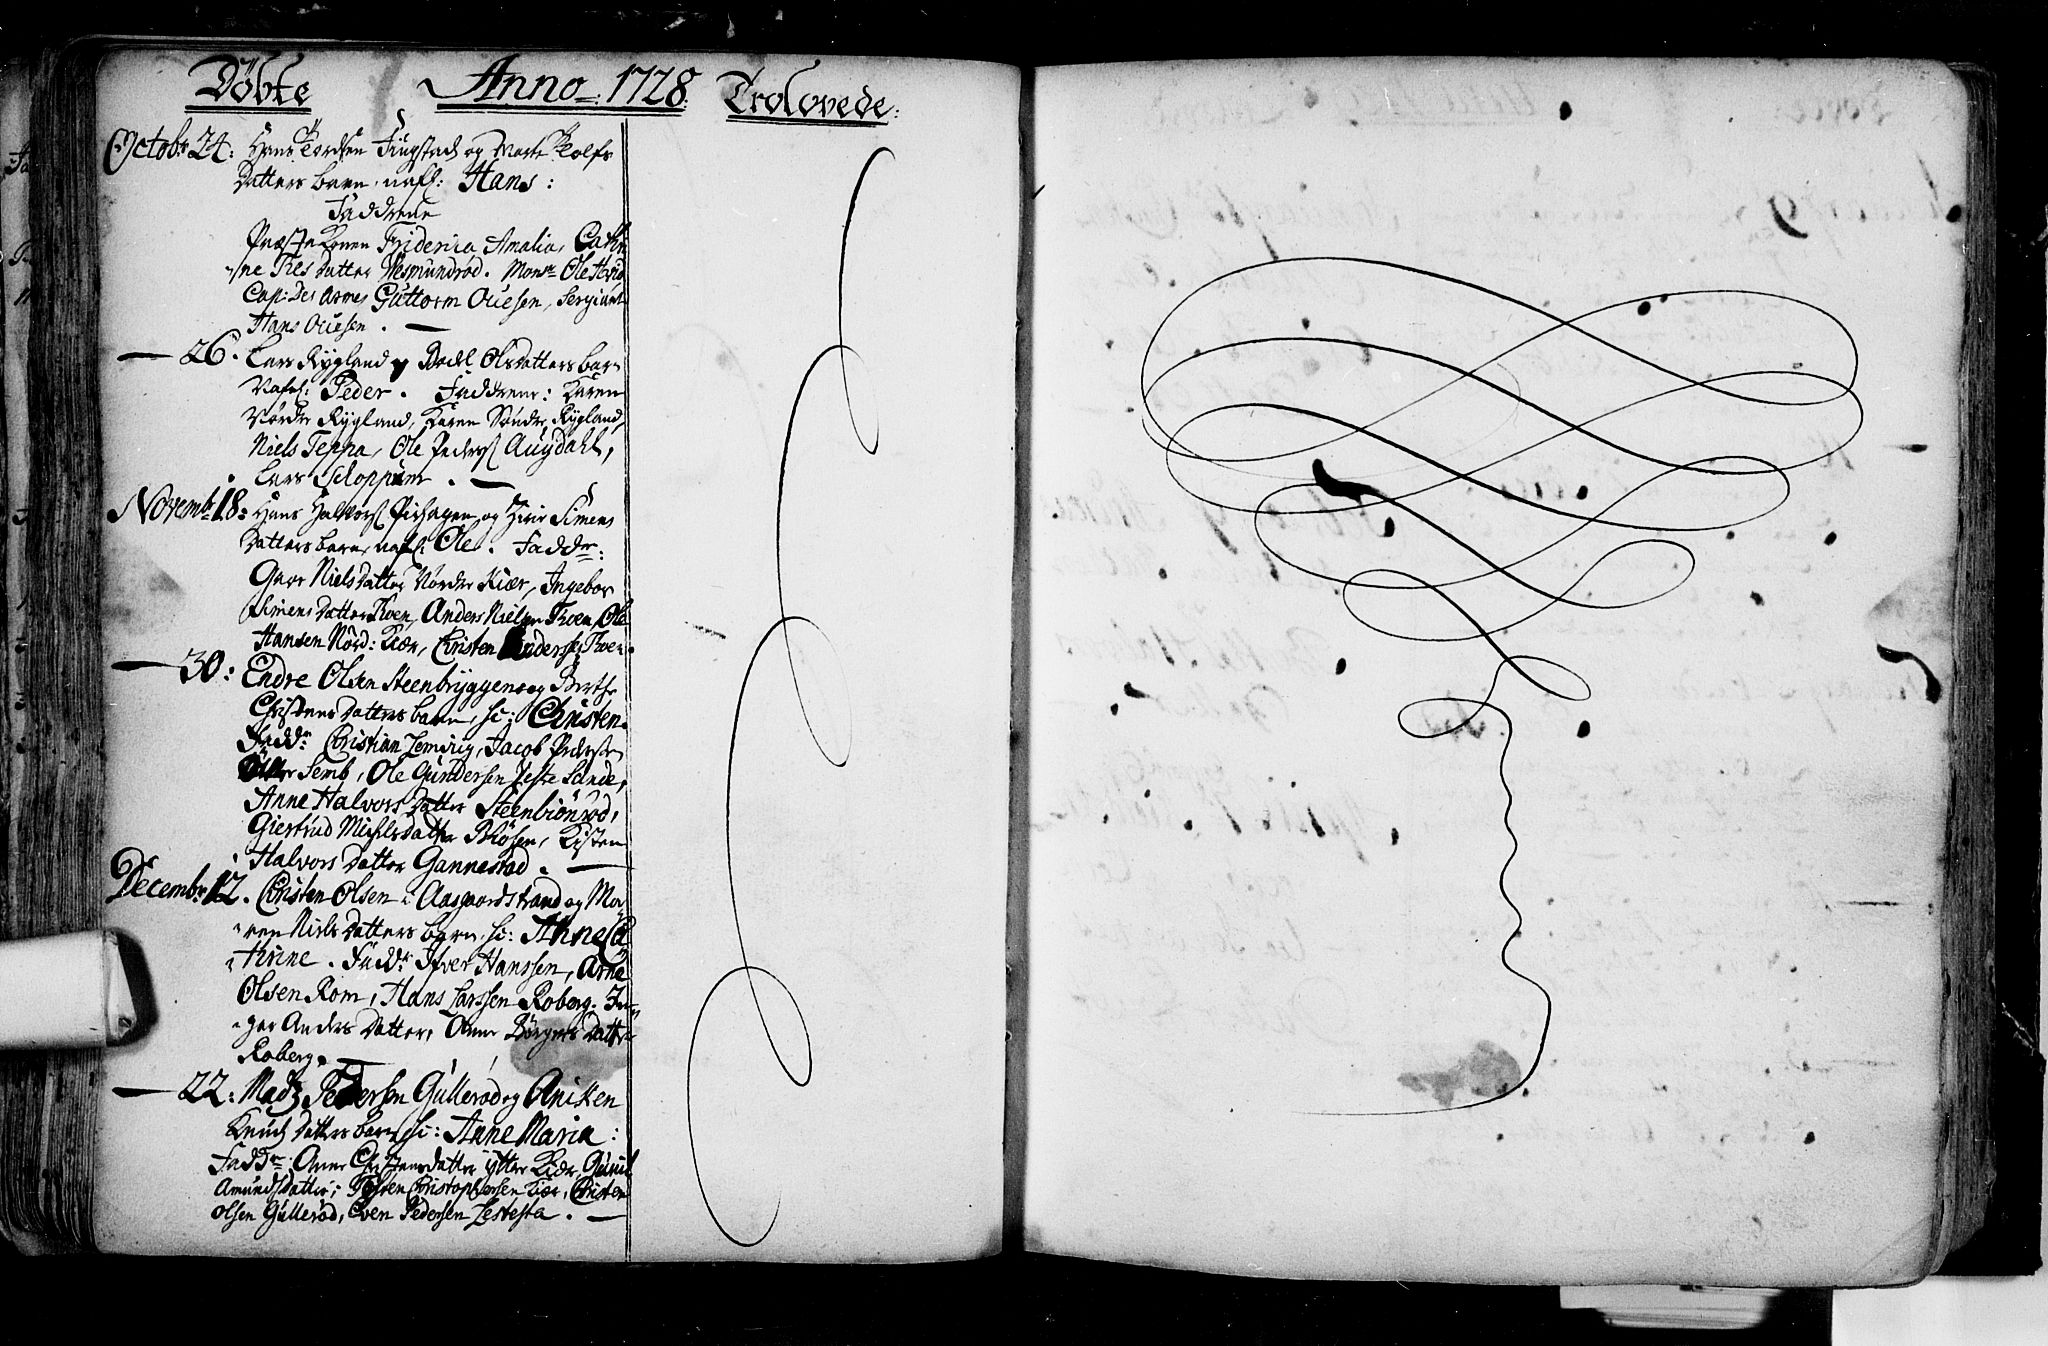 Döbte Anno 1728. Trolovede:
Octobr 24: Hans Tordsen Fingstad og Marte Rolfs
Datters barn, nafl: Hans:
Faddrene
Præste Konen Friderica Amalia, Cathri
ne Nils Datter Wesmundröd. Monsr Ole
Cap: Des Armes Guttorm Ouesen, Sergiant
Hans Ouesen.
— 26. Lars Rygland og Bodel Olsdatters barn
Nafl: Peder. Faddrene: Karen
Nördre Rygland, Karen Söndre Rygland,
Niels Teppa, Ole Peders: Augdahl,
Lars Schoppum.
Novembr 18: Hans Halvors: og Siri Simens
Datters barn, nafl: Ole. Faddr:
Nielsdatter Nördre Kiær, Ingebor
Simens datter Thoen, Anders Nielsen Thoen, Ole
Hansen Nörd: Kiær, Christen Anders: Thoen.
— 30: Endre Olsen Steenbryggen og Berthe
Christens datters barn, sc: Christen.
Fadd: Christian Lemvig, Jacob Pedersen
Semb, Ole Gundersen Veste Sande,
Anne Halvors Datter Steenbiönröd,
Giertrud Michels datter Kisten
Halvors Datter Gannestad.
Decembr 12. Christen Olsen i Aasgaardstrand og Ma-
ren Niels Datters barn. sc: Anne Ca
thrine. Fadd: Ifver Hanssen, Arne
Olsen Rom, Hans Larssen Roberg. In-
ger Anders Datter, Anne Börgers Datter
Roberg.
— 22: Madz Pedersen Gulleröd og Aniken
Knuds Datters barn sc: Anne Maria:
Faddr: Anne Christensdatter ytter Kiær, Gunil
Amunds datter, Christophersen Kiær, Christen
Olsen Gulleröd, Even Pedersen